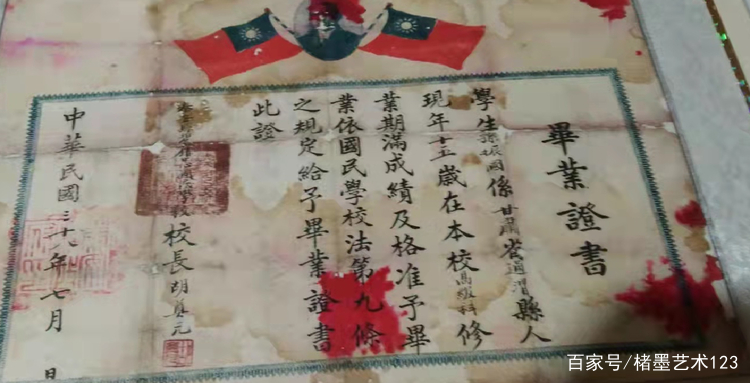 畢業證書
學生張振國係甘肅省通渭縣人
現年十五歲在本校高級科修
業期滿成績及格准予畢
業依國民學校法第九條
之規定給予畢業證書
此證
校長胡貞元
中華民國三十八年七月 日
百家号/楮墨艺术123